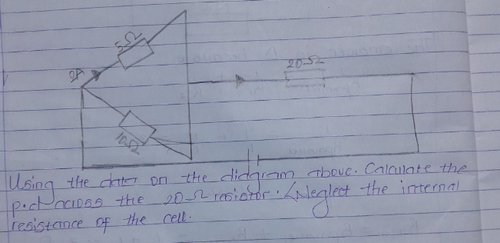 5Ω
2A
20Ω
10Ω
Using the data on the diagram above. Calculate the
p.d across the 20Ω resistor. (Neglect the internal
resistance of the cell.